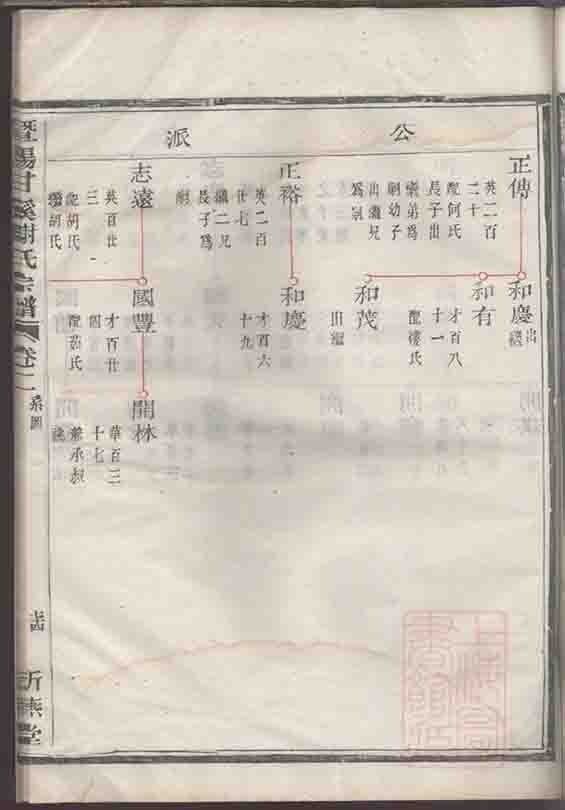 公
派
正傳
英二百
二十
配何氏
長子出
繼弟為
嗣幼子
出繼兄
為嗣
和慶
出繼
和有
才百八
十一
配樓氏
和茂
出繼
正裕
英二百
廿七
繼二兄
長子為
嗣
和慶
才百六
十九
志遠
英百廿
三
配胡氏
繼胡氏
國豐
才百廿
四
配茹氏
開林
華百三
十七
兼承叔
祧
暨陽甘溪謝氏宗譜
卷二
系圖